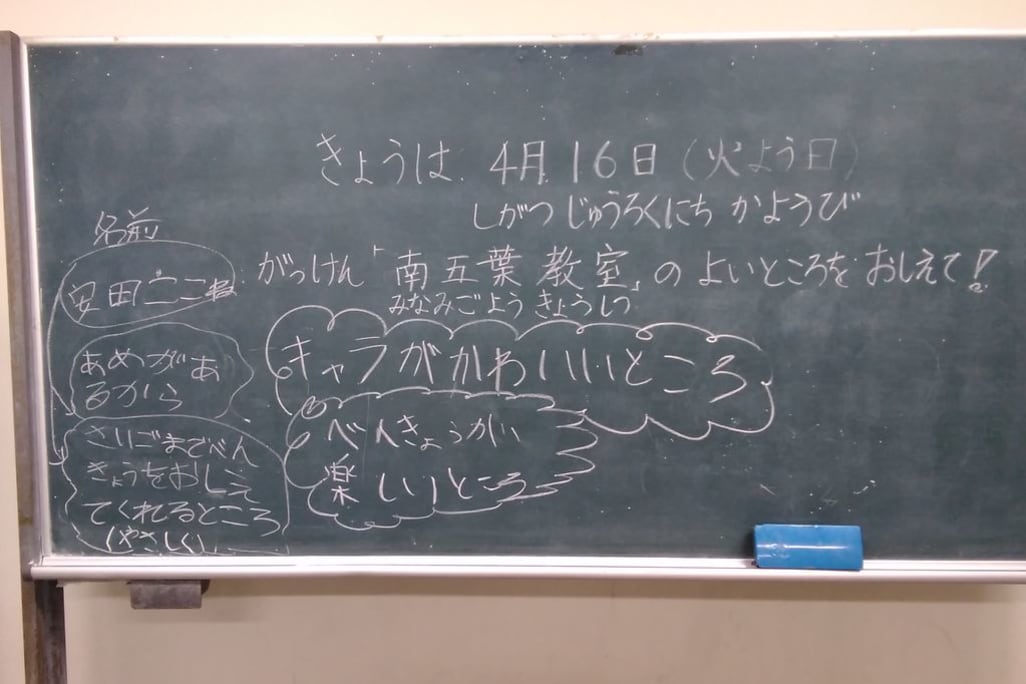 きょうは 4月 16日 (火よう日)
しがつ じゅうろくにち かようび
名前
がっけん「南五葉教室」の よいところを おしえて!
みなみごよう きょうしつ
安田
キャラがかわいいところ
あめがあ
るから
べんきょうが
楽しいところ
さいごまでべん
きょうをおしえ
てくれるところ
(やさしく)